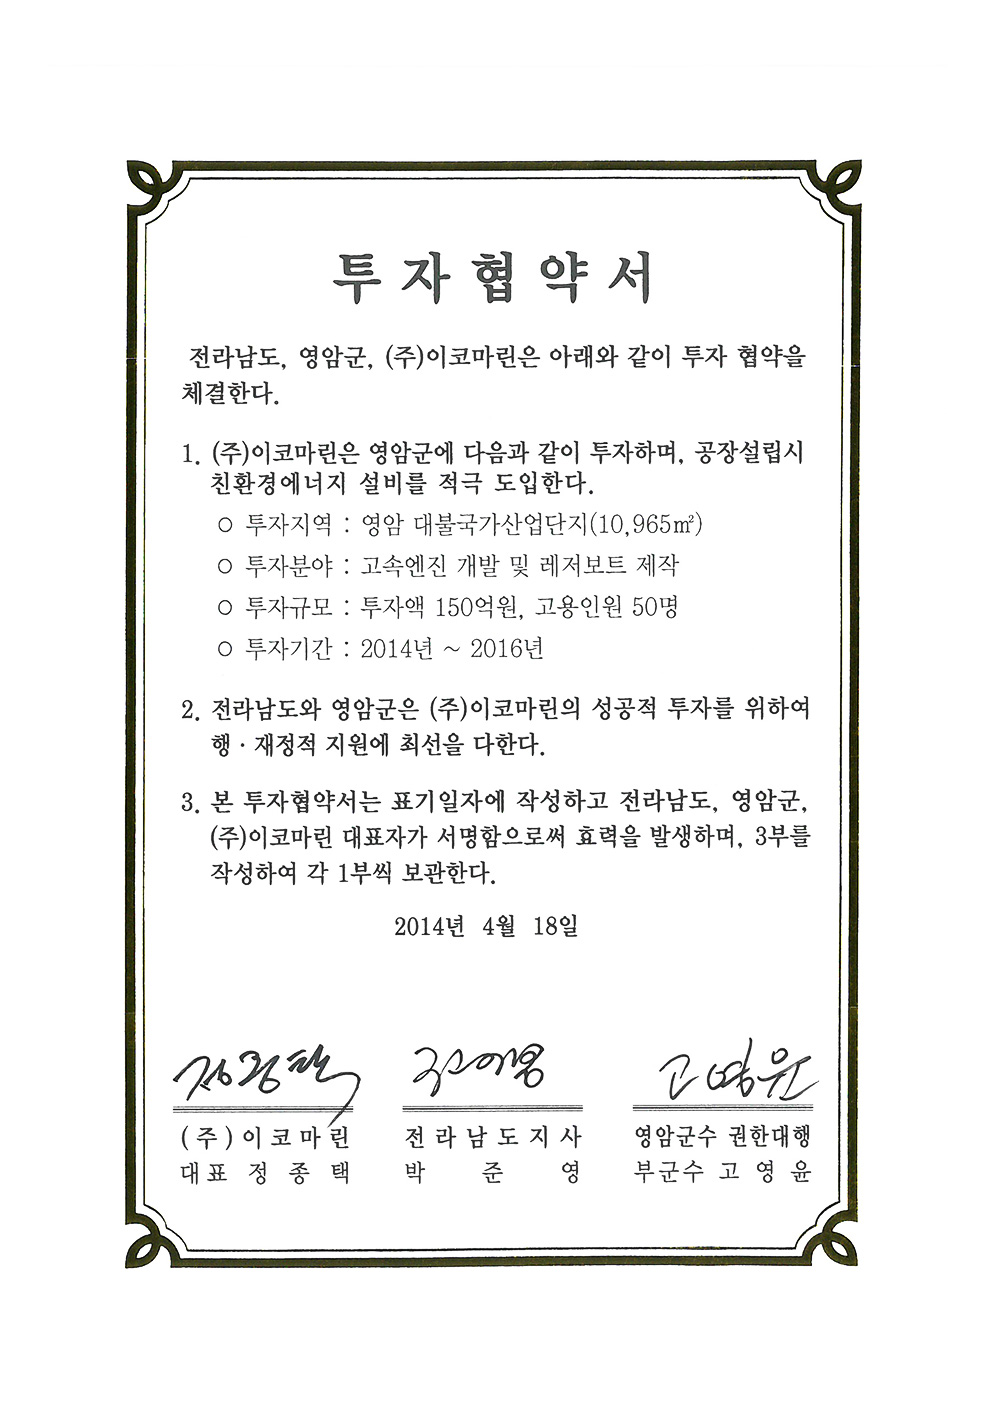 투자협약서
전라남도, 영암군, (주)이코마린은 아래와 같이 투자 협약을
체결한다.
1. (주)이코마린은 영암군에 다음과 같이 투자하며, 공장설립시
친환경에너지 설비를 적극 도입한다.
○ 투자지역 : 영암 대불국가산업단지(10,965㎡)
○ 투자분야 : 고속엔진 개발 및 레저보트 제작
○ 투자규모 : 투자액 150억원, 고용인원 50명
○ 투자기간 : 2014년 ~ 2016년
2. 전라남도와 영암군은 (주)이코마린의 성공적 투자를 위하여
행·재정적 지원에 최선을 다한다.
3. 본 투자협약서는 표기일자에 작성하고 전라남도, 영암군,
(주)이코마린 대표자가 서명함으로써 효력을 발생하며, 3부를
작성하여 각 1부씩 보관한다.
2014년 4월 18일
정종택
고영윤
(주)이코마린 전라남도지사 영암군수 권한대행
대표 정종택 박준영 부군수 고영윤